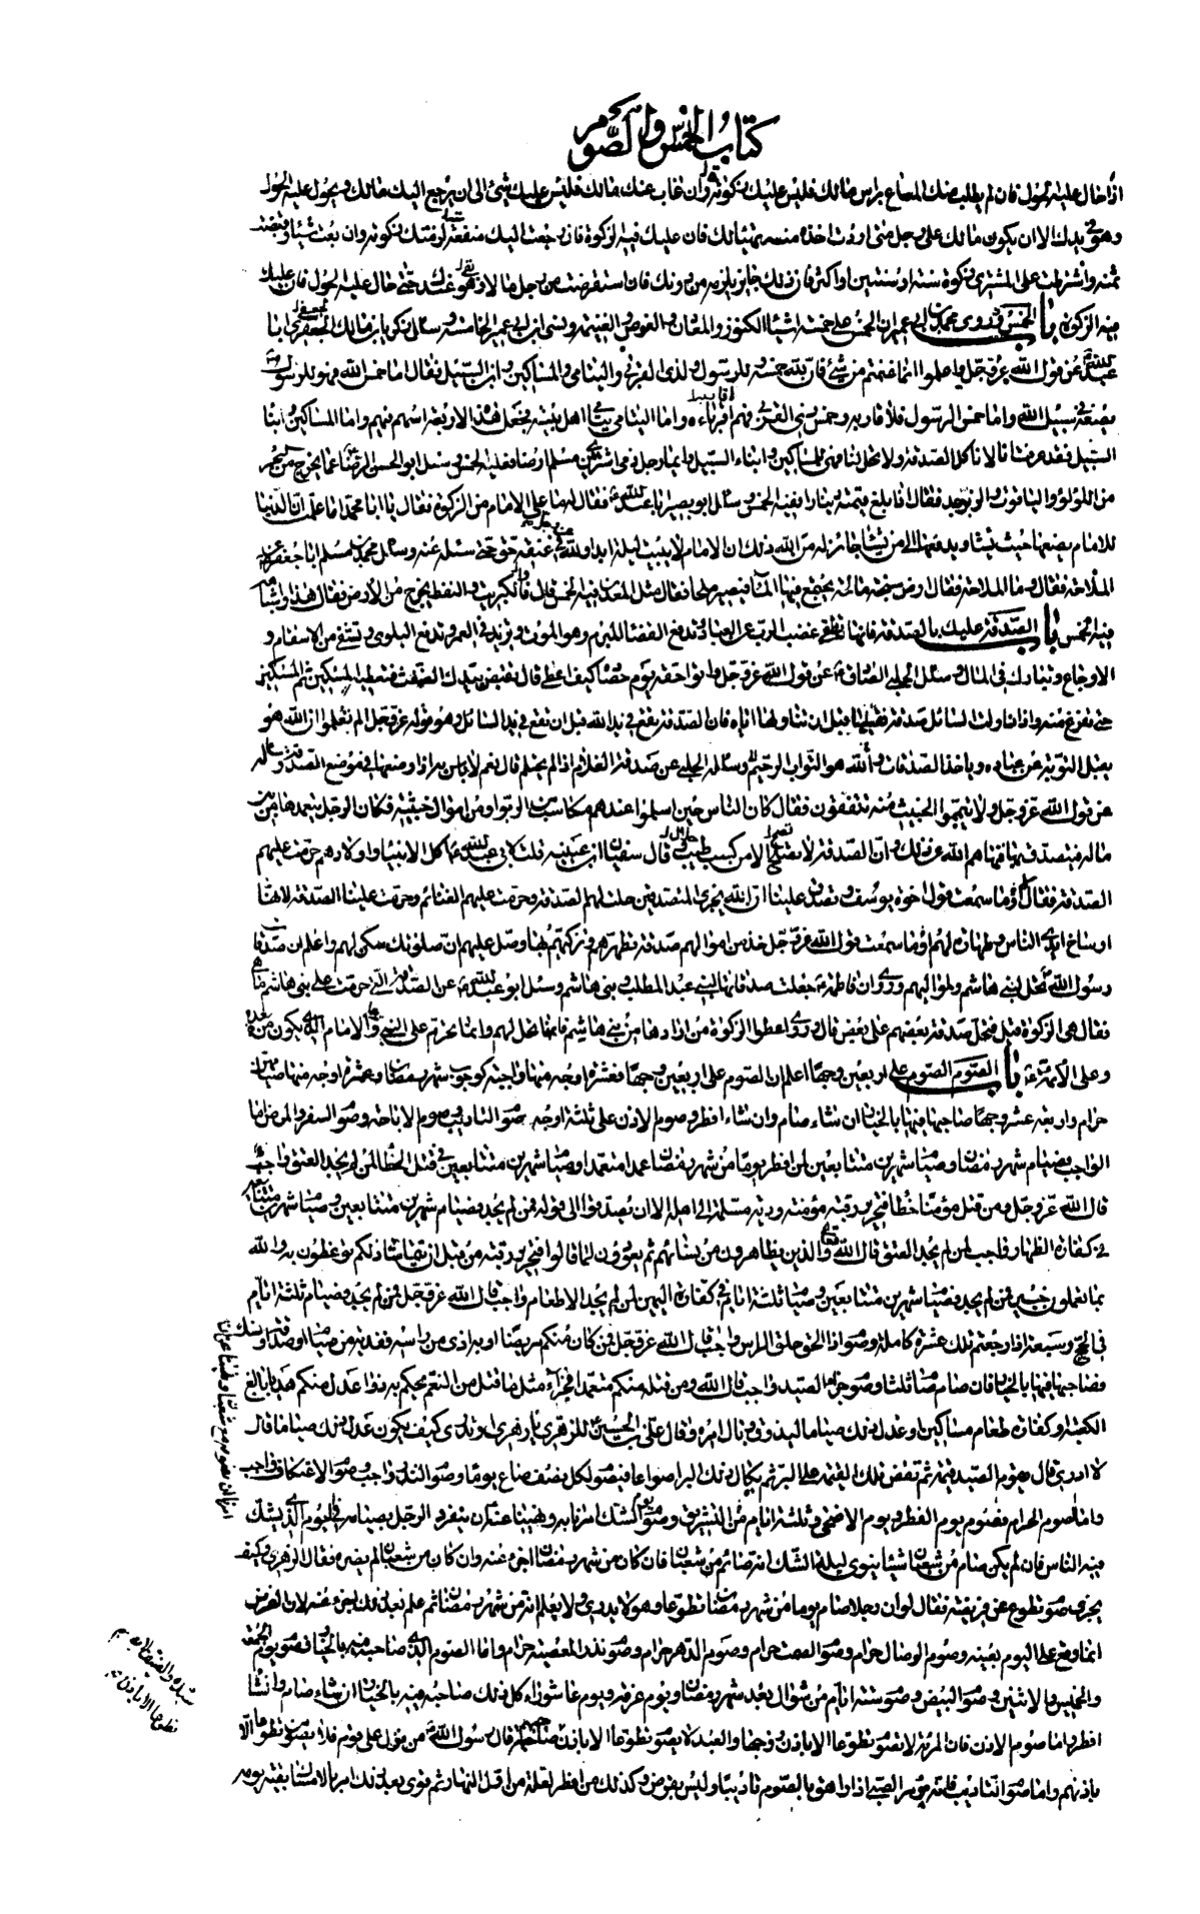 كتاب الخمس والصوم
اذا حال عليه الحول فان لم يطلب منك المتاع براس مالك فليس عليك زكوته وان غاب عنك مالك فليس عليك شيء الى ان يرجع اليك مالك ويحول عليه الحول
وهو في يدك الا ان يكون مالك على رجل متى اردت اخذه منه تهيّا لك فان عليك فيه الزكوة فان رجعت اليك منفعته لزمتك زكوته وان بعت شيئا وقبضت
ثمنه واشترطت على المشتري زكوة سنة او سنتين او اكثر فان ذلك جايز يلزمه من دونك فان استقرضت من رجل مالا وهو عندك حتى حال عليه الحول فان عليك
فيه الزكوة باب الخمس روى محمد بن ابي عمير ان الخمس على خمسة اشياء الكنوز والمعادن والغوص والغنيمة ونسى ابن ابي عمير الخامسة وسئل زكريا بن مالك الجعفي ابا
عبد الله عن قول الله عز وجل واعلموا انما غنمتم من شيء فان لله خمسه وللرسول ولذي القربى واليتامى والمساكين وابن السبيل فقال اما خمس الله فهو للرسول
يضعه في سبيل الله واما خمس الرسول فلاقاربه وخمس ذي القربى فهم اقرباءه واما اليتامى يتامى اهل بيته فجعل هذه الاربعة اسهم فيهم واما المساكين وابناء
السبيل فقد عرفت انا لا ناكل الصدقة ولا تحل لنا فهي للمساكين وابناء السبيل وايما رجل ذمي اشترى من مسلم ارضا فعليه الخمس وسئل ابو الحسن الرضا عما يخرج من البحر
من اللؤلؤ والياقوت والزبرجد فقال اذا بلغ قيمته دينارا ففيه الخمس وسئل ابو بصير ابا عبد الله فقال له ما على الامام من الزكوة فقال يا ابا محمد اما علمت ان الدنيا
للامام يضعها حيث يشاء ويدفعها الى من يشاء جائز له من الله ذلك ان الامام لا يبيت ليلة ابدا ولله في عنقه حق يسئله عنه وسئل محمد بن مسلم ابا جعفر عن
الملاحة فقال وما الملاحة فقال ارض سبخة مالحة يجتمع فيها الماء فيصير ملحا فقال مثل المعدن فيه الخمس قال فالكبريت والنفط يخرج من الارض فقال هذا واشباهه
فيه الخمس باب الصدقة عليك بالصدقة فانها تطفى غضب الرب عن العباد وتدفع القضاء المبرم وهو الموت وتزيد في العمر وتدفع البلوى وتشفي من الاسقام و
الاوجاع وتبارك في المال وسئل الحلبي الصادق عن قول الله عز وجل واتوا حقه يوم حصاده كيف اعطي قال تقبض بيدك الضغث فتعطيه المسكين ثم المسكين
حتى تفرغ منه واذا ناولت السائل صدقة فقبلها قبل ان تناولها اياه فان الصدقة تقع في يد الله قبل ان تقع في يد السائل وهو قوله عز وجل الم تعلموا ان الله هو
يقبل التوبة عن عباده وياخذ الصدقات وان الله هو التواب الرحيم وسئله الحلبي عن صدقة الغلام اذا لم يحتلم قال نعم لا باس به اذا وضعها في موضع الصدقة وساله
عن قول الله عز وجل ولا تيمموا الخبيث منه تنفقون فقال كان الناس حين اسلموا عندهم مكاسب من الربوا ومن اموال خبيثة فكان الرجل يتعمدها من بين
ماله فيتصدق بها فنهاهم الله عن ذلك وان الصدقة لا تصلح الا من كسب طيب وقال سفيان ابن عيينه قلت لابي عبد الله اكل الانبياء واولادهم حرمت عليهم
الصدقة فقال لا او ما سمعت قول اخوة يوسف وتصدق علينا ان الله يجزي المتصدقين حلت لهم الصدقة وحرمت عليهم الغنائم وحرمت علينا الصدقة لانها
اوساخ ايدي الناس وطهارة لهم او ما سمعت قول الله عز وجل خذ من اموالهم صدقة تطهرهم وتزكيهم بها وصل عليهم ان صلوتك سكن لهم واعلم ان صدقات
رسول الله تحل لبني هاشم ولمواليهم وروى ان فاطمة جعلت صدقاتها لبني عبد المطلب وبني هاشم وسئل ابو عبد الله عن الصدقة التي حرمت على بني هاشم ما هي
فقال هي الزكوة قيل فتحل صدقة بعضهم على بعض قال وروى اعطوا الزكوة من ارادها من بني هاشم فانها تحل لهم وانما تحرم على النبي والامام الذي يكون من بعده
وعلى الائمة باب الصوم الصوم على اربعين وجها اعلم ان الصوم على اربعين وجها فعشرة اوجه منها واجبة كوجوب شهر رمضان وعشرة اوجه منها صيامهن
حرام واربعة عشر وجها صاحبها فيها بالخيار ان شاء صام وان شاء افطر وصوم الاذن على ثلثة اوجه صوم التاديب وصوم الاباحة وصوم السفر والمرض اما
الواجب فصيام شهر رمضان وصيام شهرين متتابعين لمن افطر يوما من شهر رمضان عمدا متعمدا وصيام شهرين متتابعين في قتل الخطا لمن لم يجد العتق واجب
قال الله عز وجل ومن قتل مؤمنا خطا فتحرير رقبة مؤمنة ودية مسلمة الى اهله الا ان يصدقوا الى قوله فمن لم يجد فصيام شهرين متتابعين وصيام شهرين متتابعين
في كفارة الظهار واجب لمن لم يجد العتق قال الله والذين يظاهرون من نسائهم ثم يعودون لما قالوا فتحرير رقبة من قبل ان يتماسا ذلكم توعظون به والله
بما تعملون خبير فمن لم يجد فصيام شهرين متتابعين وصيام ثلثة ايام في كفارة اليمين لمن لم يجد الاطعام واجب قال الله عز وجل فمن لم يجد فصيام ثلثة ايام
في الحج وسبعة اذا رجعتم تلك عشرة كاملة وصوم اذا الحق حلق الراس واجب قال الله عز وجل فمن كان منكم مريضا او به اذى من راسه ففدية من صيام او صدقة او نسك
فصاحبها فيها بالخيار فان صام صام ثلثا وصوم جزاء الصيد واجب قال الله ومن قتله منكم متعمدا فجزاء مثل ما قتل من النعم يحكم به ذوا عدل منكم هديا بالغ
الكعبة او كفارة طعام مساكين او عدل ذلك صياما ليذوق وبال امره وقال علي بن الحسين للزهري يا زهري او تدري كيف يكون عدل ذلك صياما قال
لا ادري قال يقوم الصيد قيمة ثم تفض تلك القيمة على البر ثم يكال ذلك البر اصواعا فيصوم لكل نصف صاع يوما وصوم النذر واجب وصوم الاعتكاف واجب
واما صوم الحرام فصوم يوم الفطر ويوم الاضحى وثلثة ايام من التشريق وصوم يوم الشك امرنا به ونهينا عنه ان ينفرد الرجل بصيامه في اليوم الذي يشك
فيه الناس فان لم يكن صام من شعبان شيئا ينوي ليلة الشك انه صائم من شعبان فان كان من شهر رمضان اجزء عنه وان كان من شعبان لم يضره فقال الزهري وكيف
يجزي صوم تطوع عن فريضة فقال لو ان رجلا صام يوما من شهر رمضان تطوعا وهو لا يدري ولا يعلم انه من شهر رمضان ثم علم بعد ذلك اجزء عنه لان الفرض
انما وقع على اليوم بعينه وصوم الوصال حرام وصوم الصمت حرام وصوم الدهر حرام وصوم نذر المعصية حرام واما الصوم الذي صاحبه فيه بالخيار فصوم يوم الجمعة
والخميس والاثنين وصوم البيض وصوم ستة ايام من شوال بعد شهر رمضان ويوم عرفة ويوم عاشوراء كل ذلك صاحبه فيه بالخيار ان شاء صام وان شاء
افطر واما صوم الاذن فان المرئة لا تصوم تطوعا الا باذن زوجها والعبد لا يصوم تطوعا الا باذن صاحبه قال رسول الله من نزل على قوم فلا يصوم تطوعا الا
باذنهم واما صوم التاديب فانه يؤمر الصبي اذا راهق بالصوم تاديبا وليس بفرض وكذلك من افطر لعلة من اول النهار ثم قوى بعد ذلك امر بالامساك بقية يومه